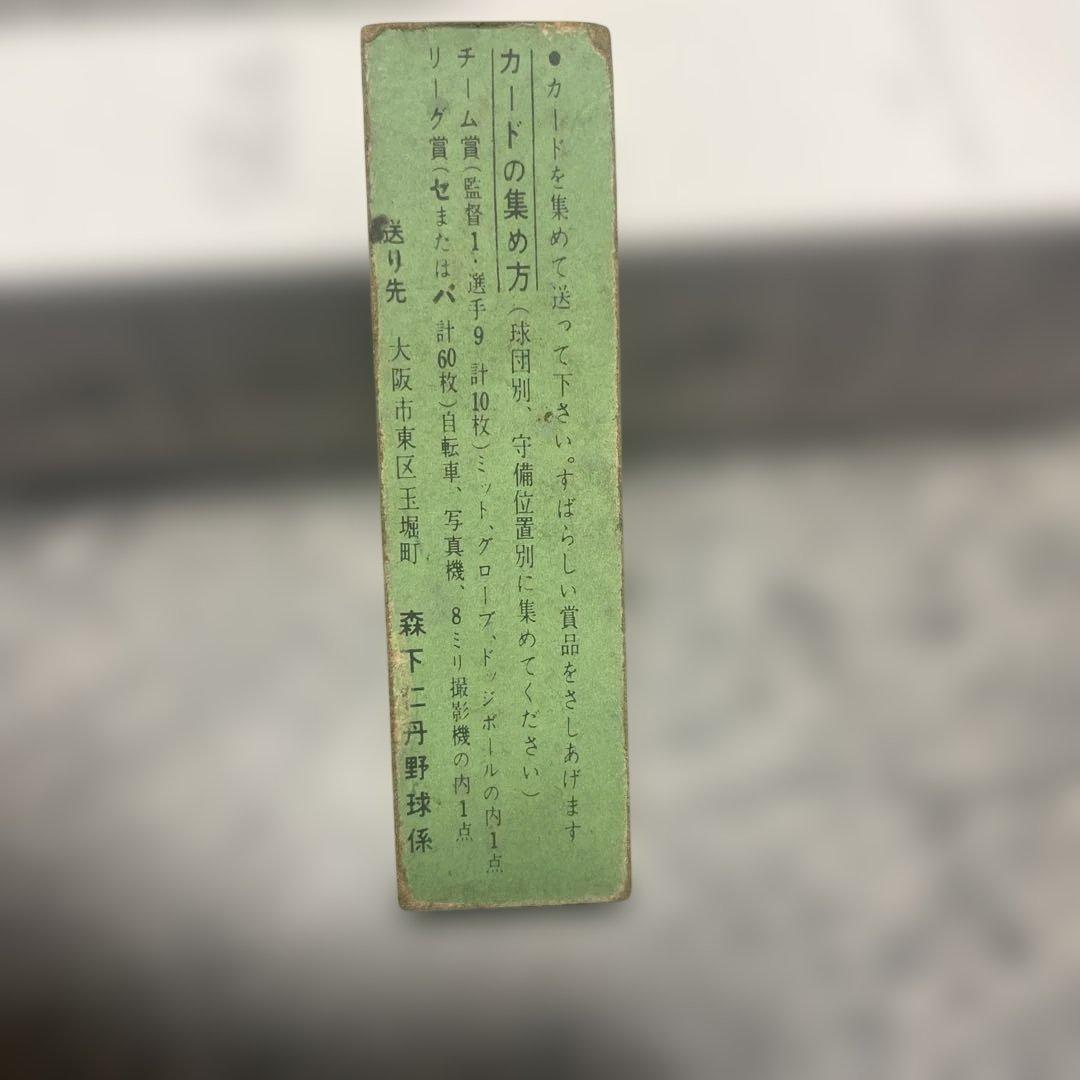 ●カードを集めて送って下さい。すばらしい賞品をさしあげます
カードの集め方（球団別、守備位置別に集めてください）
チーム賞（監督1・選手9 計10枚）ミット、グローブ、ドッジボールの内1点
リーグ賞（セまたはパ 計60枚）自転車、写真機、8ミリ撮影機の内1点
送り先 大阪市東区玉堀町 森下仁丹野球係